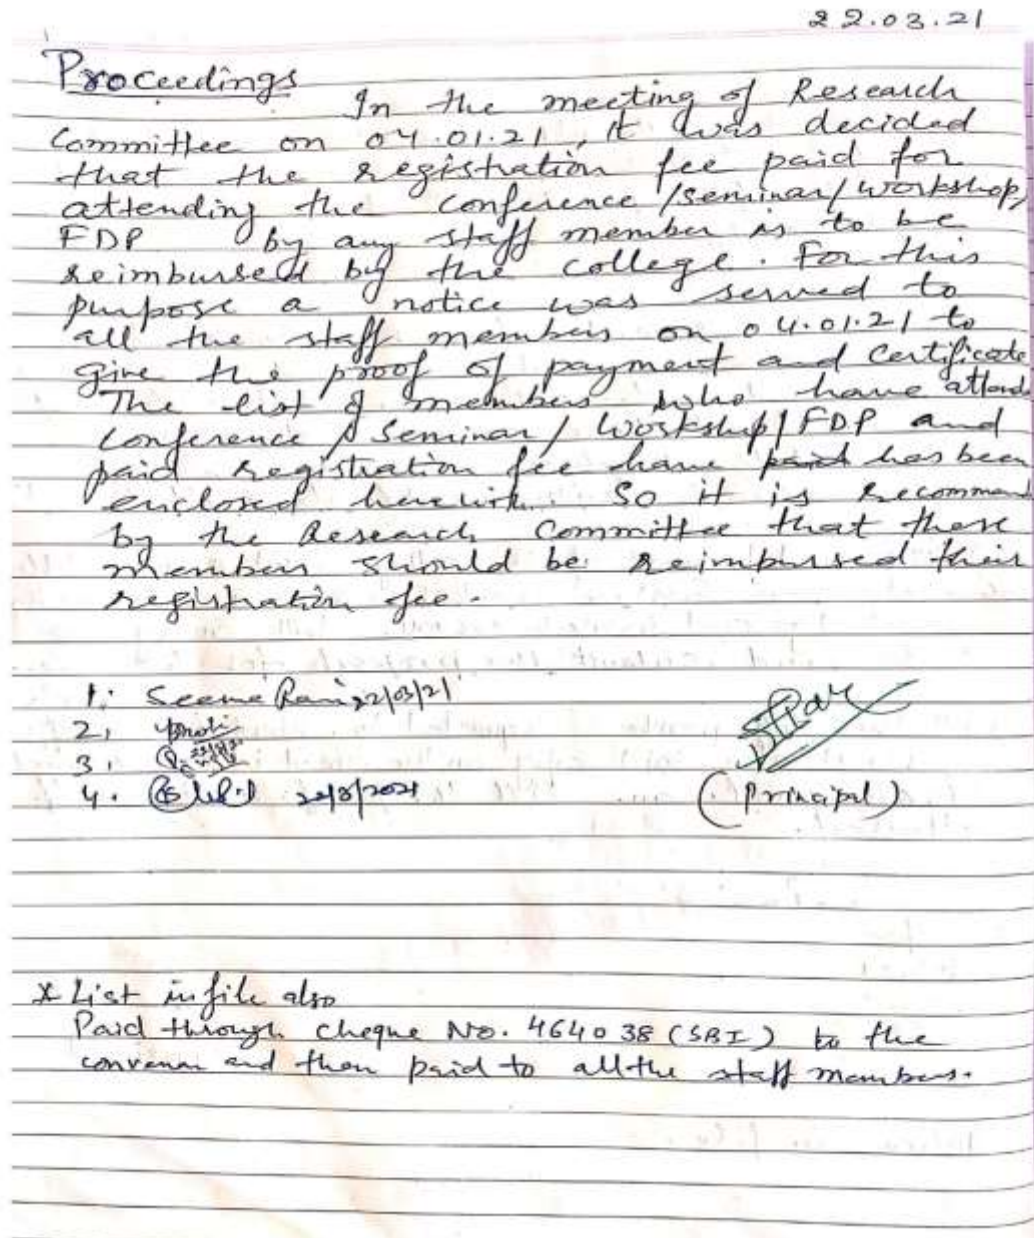 22.03.21
Proceedings
In the meeting of Research
Committee on 04.01.21, it was decided
that the registration fee paid for
attending the conference/seminar/workshop/
FDP by any staff member is to be
reimbursed by the college. For this
purpose a notice was served to
all the staff members on 04.01.21 to
give the proof of payment and Certificate
The list of members who have attend
Conference / Seminar / Workshop/FDP and
paid registration fee have paid has been
enclosed herewith. So it is recommend
by the Research Committee that these
members should be reimbursed their
registration fee.
1. Seema Rani 22/03/21
2,
3.
4. 22/3/2021
(Principal)
* List in file also
Paid through cheque No. 464038 (SBI) to the
convenor and then paid to all the staff members.